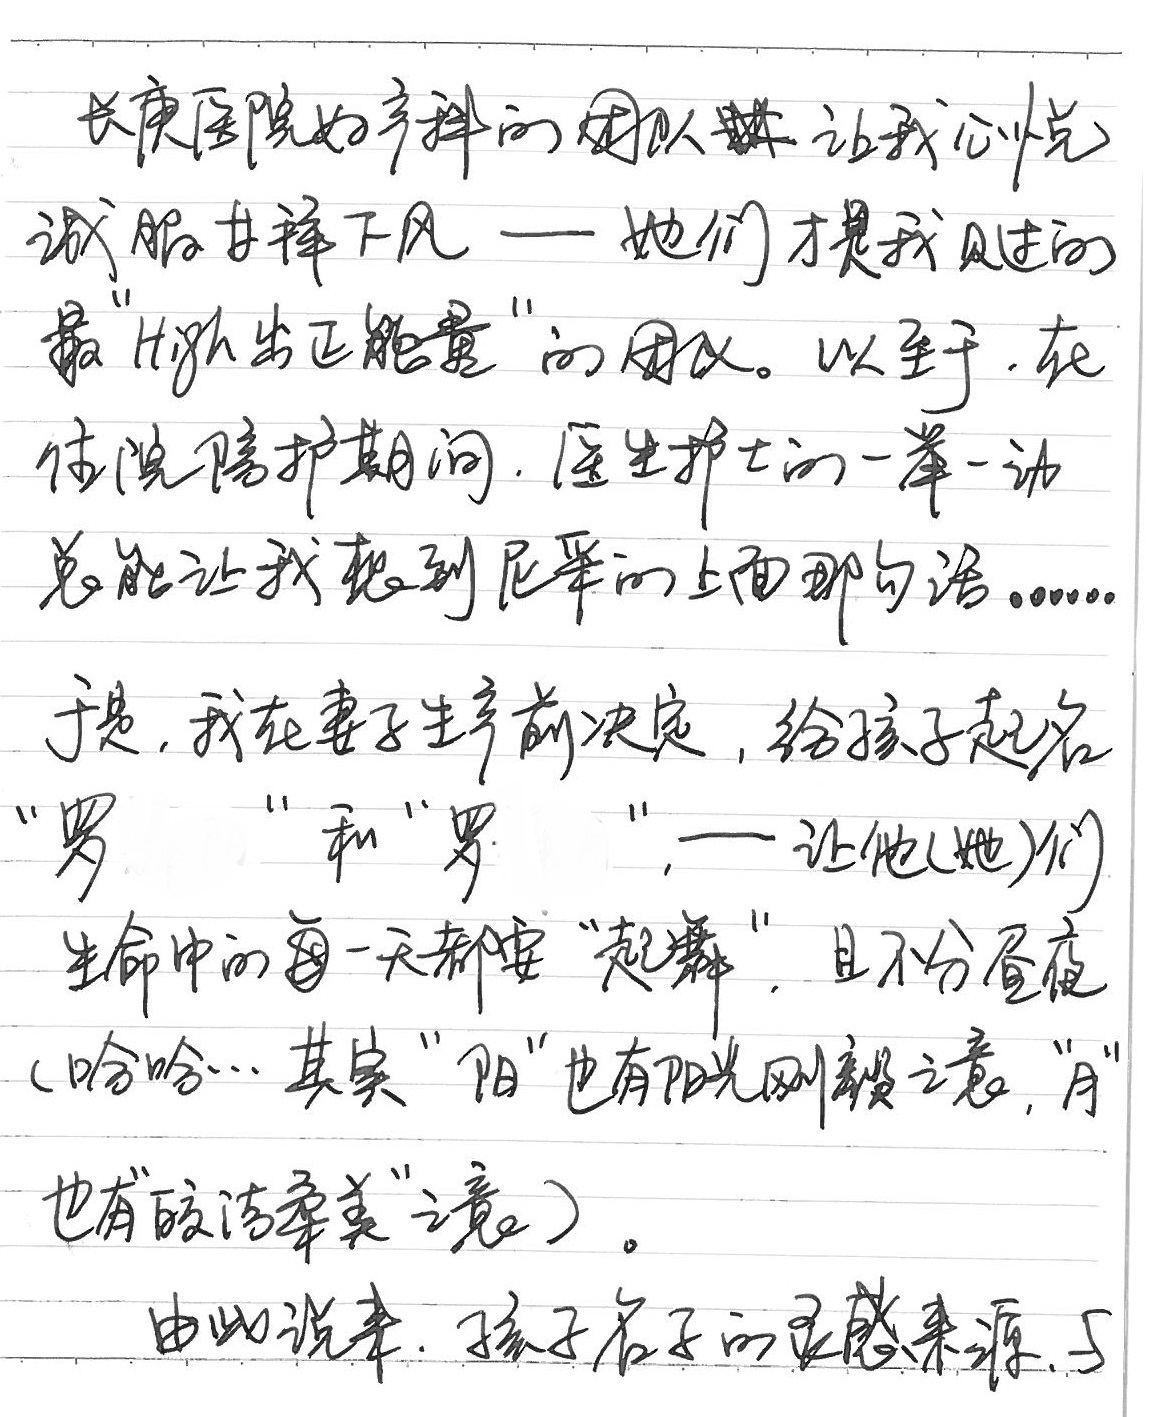 长庚医院妇产科的团队让我心悦
诚服甘拜下风——她们才是我见过的
最"High出正能量"的团队。以至于,在
住院陪护期间,医生护士的一举一动
总能让我想到尼采的上面那句话……
于是,我在妻子生产前决定,给孩子起名
"罗 "和"罗 ",——让他(她)们
生命中的每一天都要"起舞",且不分昼夜
(哈哈…其实"阳"也有阳光刚毅之意,"月"
也有"皎洁柔美"之意)。
由此说来,孩子名字的灵感来源,与